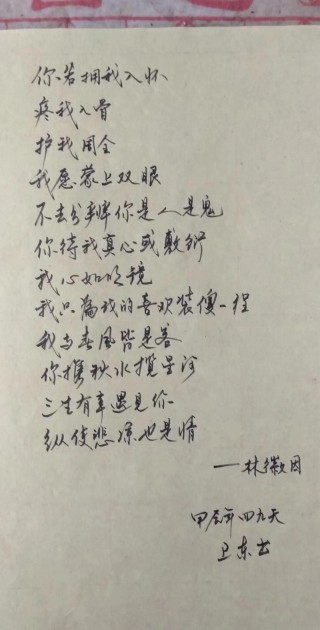 你若拥我入怀
疼我入骨
护我周全
我愿蒙上双眼
不去分辨你是人是鬼
你待我真心或敷衍
我心如明镜
我只为我的喜欢装傻一程
我与春风皆是客
你携秋水揽星河
三生有幸遇见你
纵使悲凉也是情
——林徽因
甲辰年四九天
卫东书